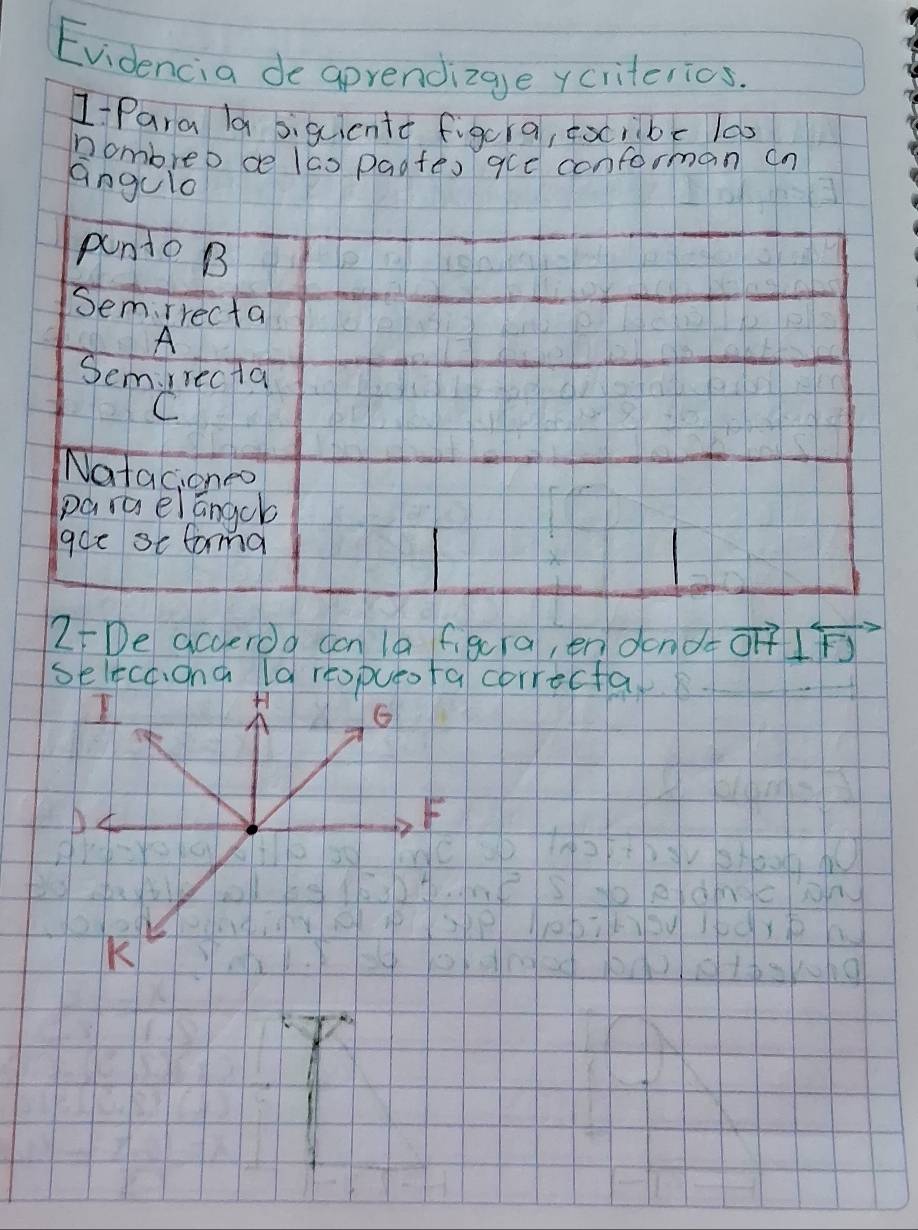 Evidencia de aprendizaje y criterios.
1-Para la siguiente figura, escribe los
nombres de las partes que conforman un
ángulo
punto B
Semirrecta
A
Semirrecta
C
Notaciones
para el ángulo
que se forma
2-De acuerdo con la figura, en donde OH ⊥ FJ
selecciona la respuesta correcta.
I H G
J F
K